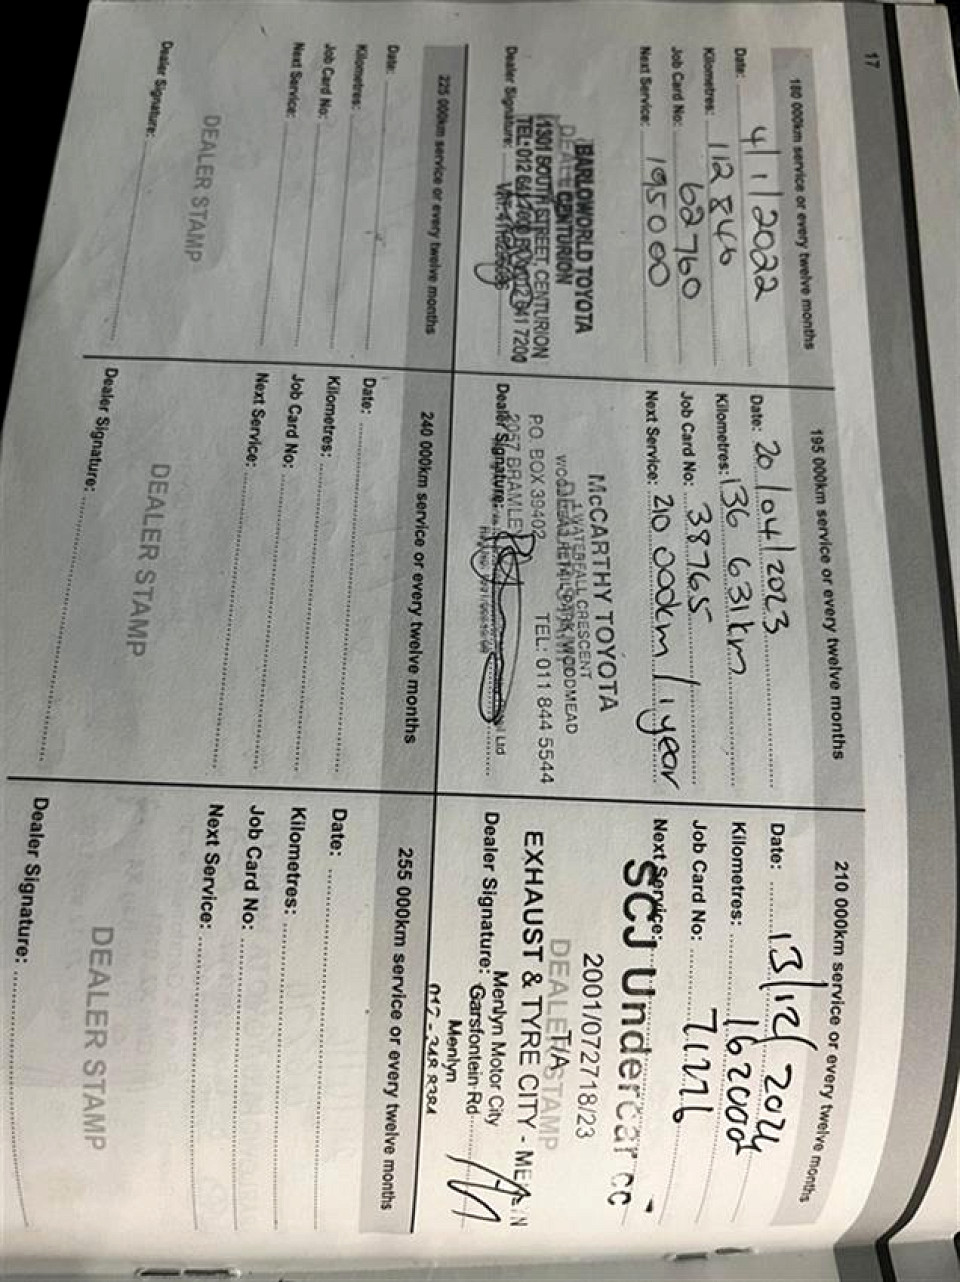 17
180 000km service or every twelve months
Date: 4/1/2022
Kilometres: 112 846
Job Card No: 62760
Next Service: 195000
BARLOWORLD TOYOTA
CENTURION
1301 SOUTH STREET, CENTURION
TEL: 012 641 7200
Dealer Signature:
195 000km service or every twelve months
Date: 20/04/2023
Kilometres: 136 631km
Job Card No: 38765
Next Service: 210 000km / 1year
McCARTHY TOYOTA
1 WATERFALL CRESCENT
WOODMEAD RETAIL PARK, WOODMEAD
PO BOX 39402
TEL: 011 844 5544
2057 BRAMLEY
Dealer Signature:
210 000km service or every twelve months
Date: 13/12/2024
Kilometres:
Job Card No:
Next Service:
SCJ Undercar CC
2001/072718/23
T/A
DEALER STAMP
EXHAUST & TYRE CITY - MENLYN
Menlyn Motor City
Dealer Signature: Garsfontein Rd
Menlyn
225 000km service or every twelve months
Date:
Kilometres:
Job Card No:
Next Service:
DEALER STAMP
Dealer Signature:
240 000km service or every twelve months
Date:
Kilometres:
Job Card No:
Next Service:
DEALER STAMP
Dealer Signature:
255 000km service or every twelve months
Date:
Kilometres:
Job Card No:
Next Service:
DEALER STAMP
Dealer Signature: